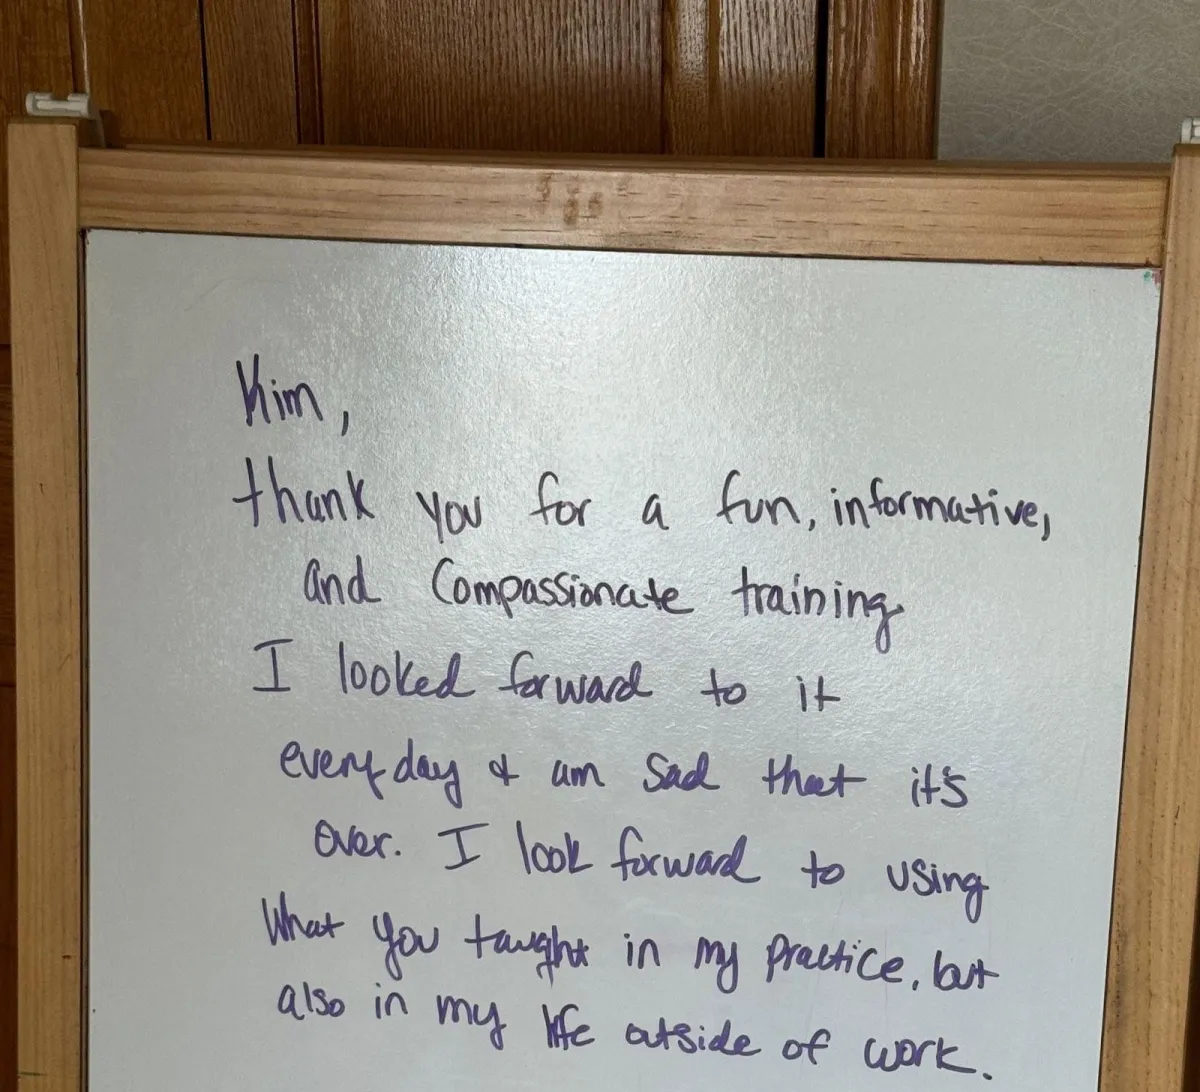 Kim,
thank you for a fun, informative,
and Compassionate training
I looked forward to it
every day & am sad that it's
over. I look forward to using
What you taught in my practice, but
also in my life outside of work.